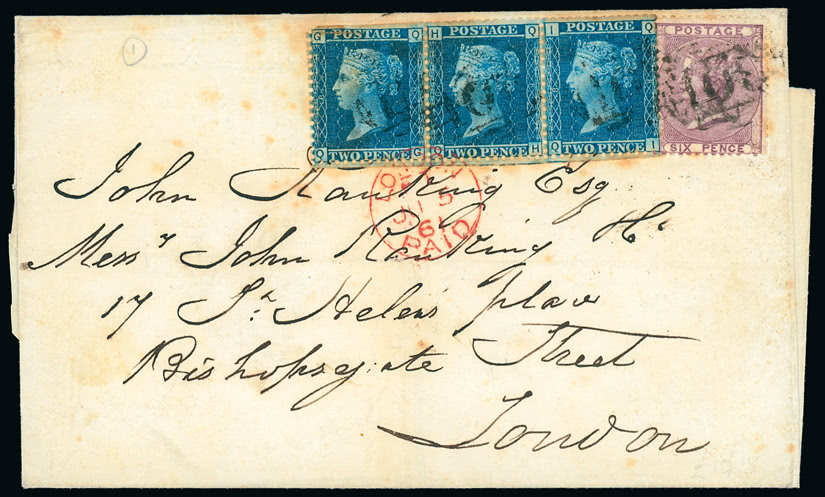 1
POSTAGE POSTAGE POSTAGE POSTAGE
G Q H Q I Q
TWO PENCE TWO PENCE TWO PENCE SIX PENCE
Q G Q H Q I
LONDON
5
61
PAID
John Ranking Esq
Mess John Ranking
17 St. Helens place
Bishopsgate Street
London